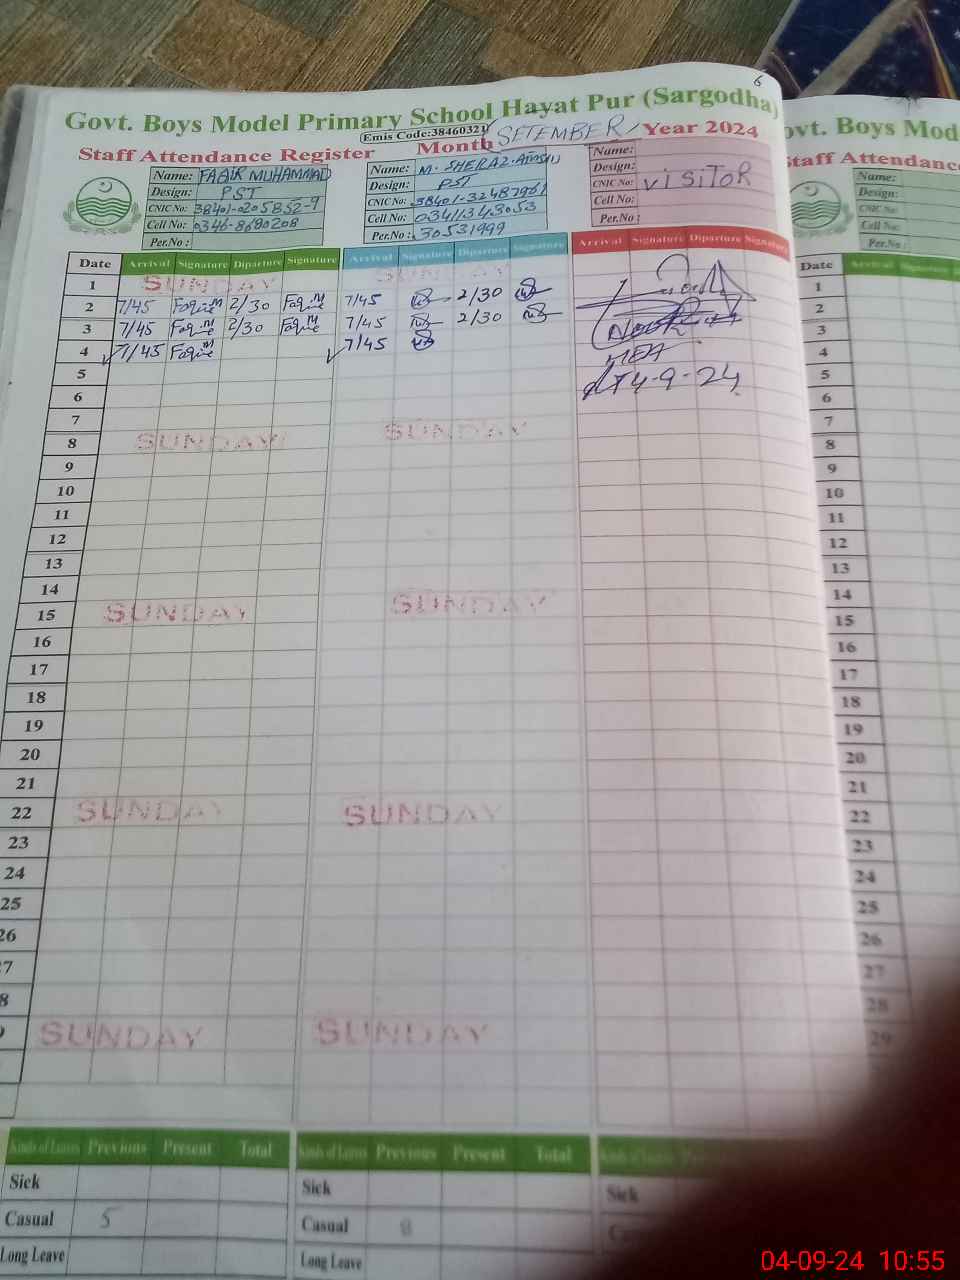 6
Govt. Boys Model Primary School Hayat Pur (Sargodha)
Emis Code:38460321
Staff Attendance Register Month SETEMBER Year 2024
Name: FAQIR MUHAMMAD
Design: PST
CNIC No: 38401-0205852-9
Cell No: 0346-8680208
Per.No :
Name: M. SHERAZ
Design: PST
CNIC No:
Cell No: 03411343053
Per.No : 30531999
Name:
Design:
CNIC No: VISITOR
Cell No:
Per.No :
Date Arrival Signature Diparture Signature Arrival Signature Diparture Signature Arrival Signature Diparture Signature
1 SUNDAY SUNDAY
2 7/45 2/30 7/45 2/30
3 7/45 2/30 7/45 2/30
4 7/45 7/45
5 4-9-24
6
7
8 SUNDAY SUNDAY
9
10
11
12
13
14
15 SUNDAY SUNDAY
16
17
18
19
20
21
22 SUNDAY SUNDAY
23
24
25
26
27
28
SUNDAY SUNDAY
Kinds of Leaves Previous Present Total Kinds of Leaves Previous Present Total
Sick Sick Sick
Casual 5 Casual 8
Long Leave Long Leave
Govt. Boys Mod
Staff Attendance
Name:
Design:
CNIC No:
Cell No:
Per.No :
Date Arrival Signature
1
2
3
4
5
6
7
8
9
10
11
12
13
14
15
16
17
18
19
20
21
22
23
24
25
26
27
28
29
04-09-24 10:55